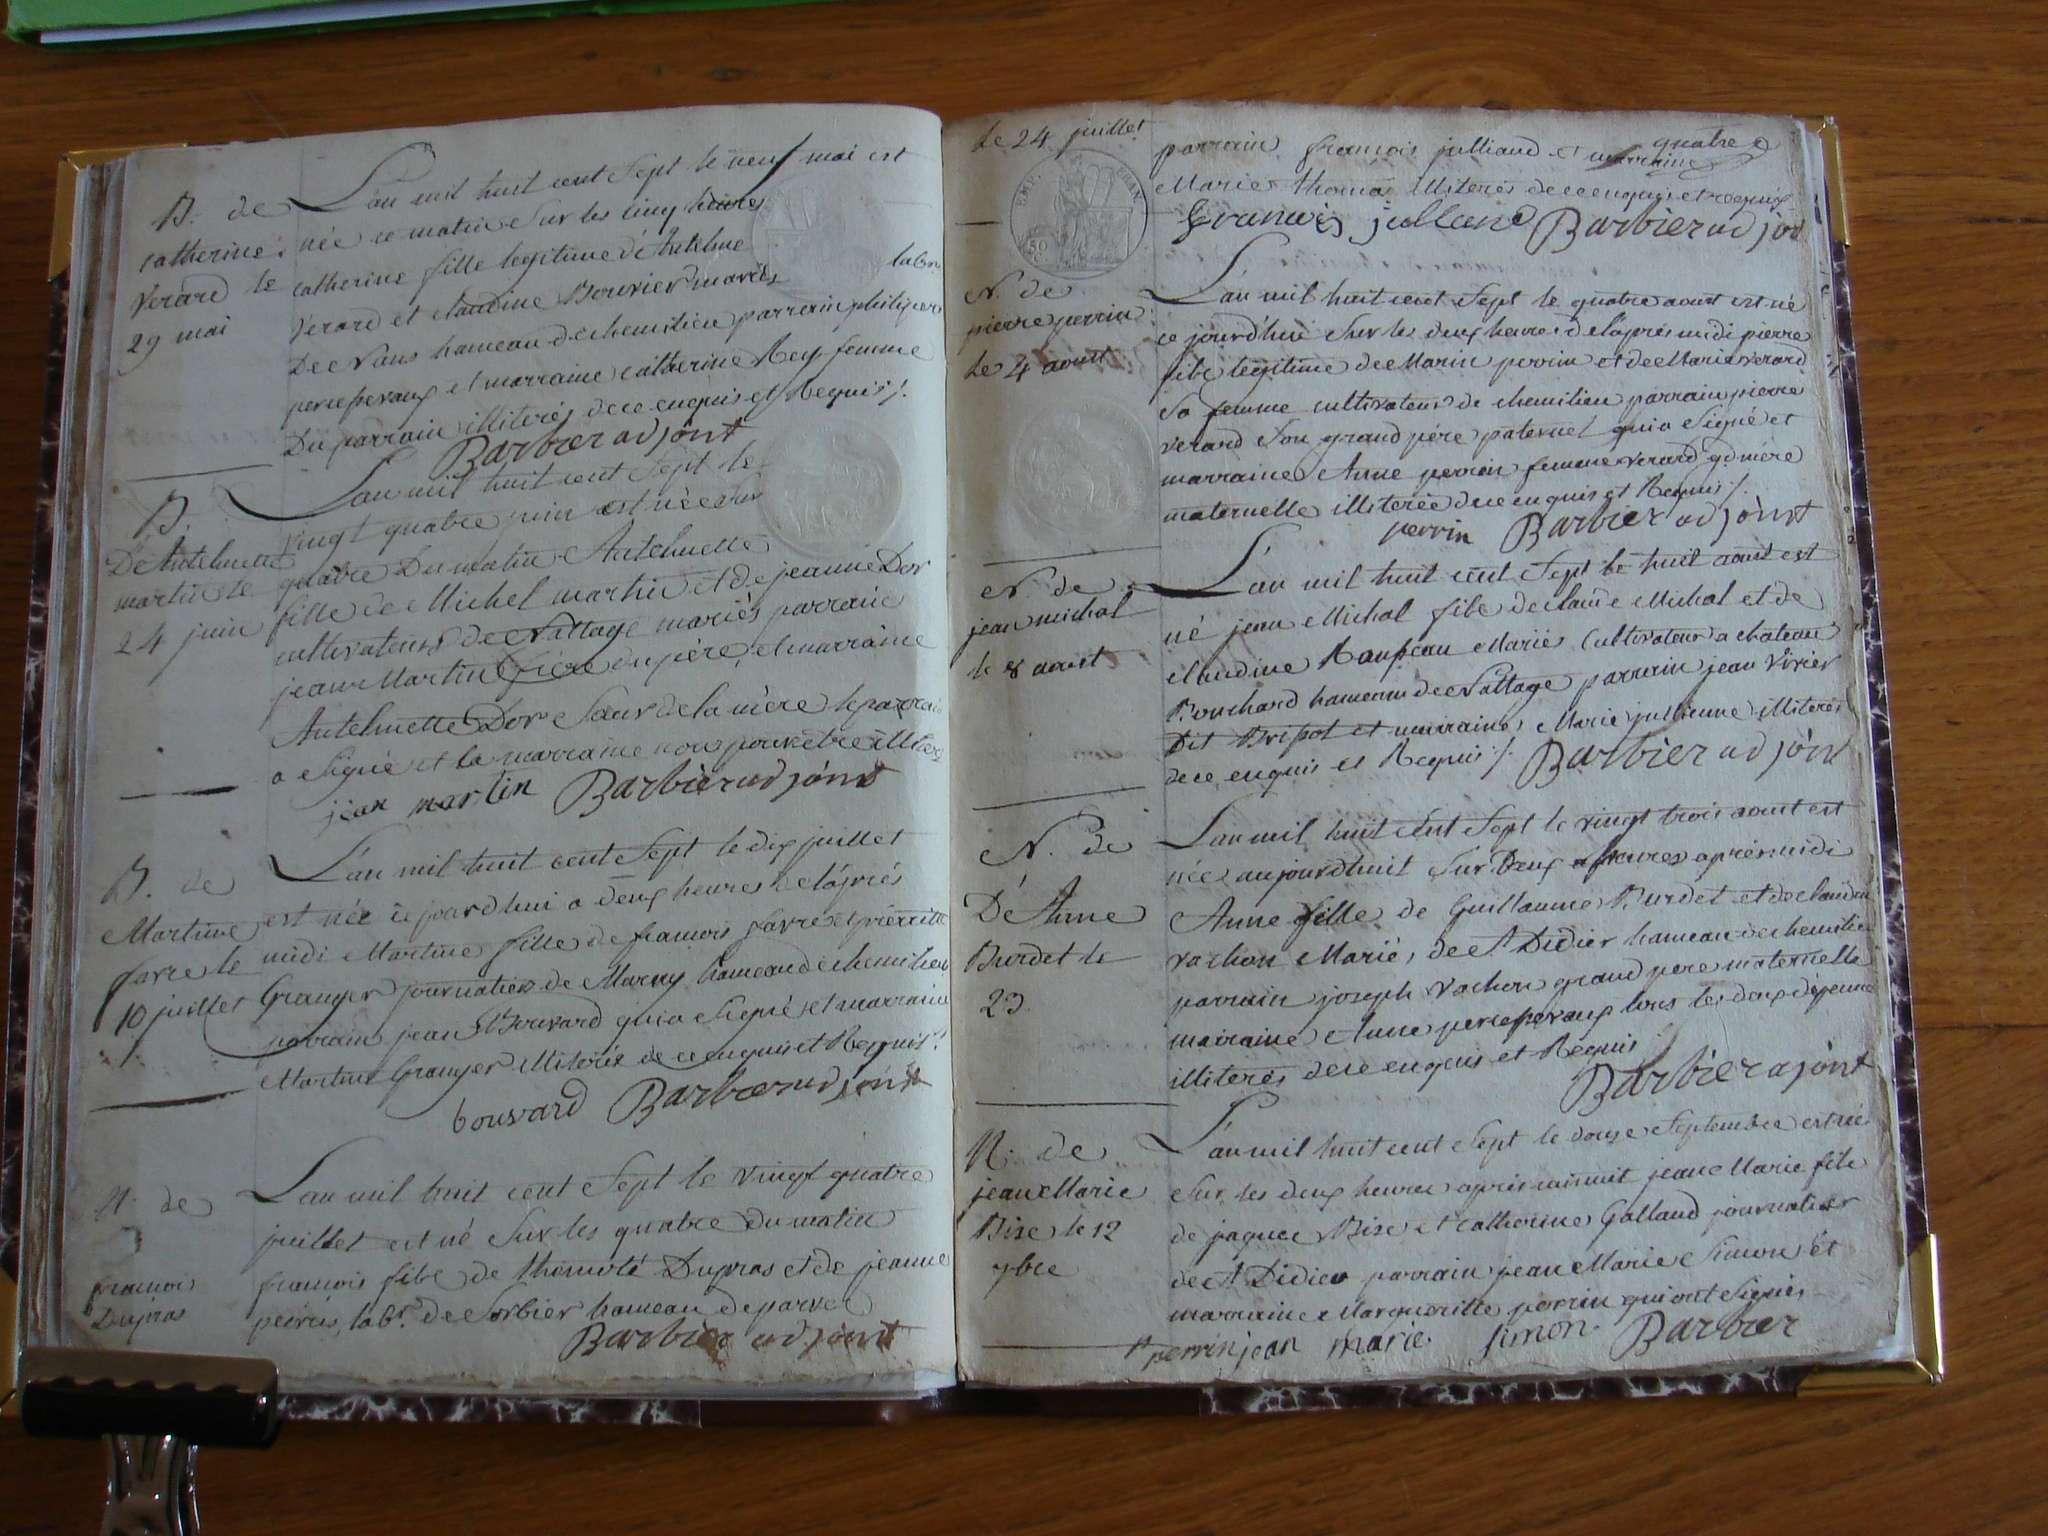 N. de
catherine
verard le
29 mai
L'an mil huit cent Sept le neuf mai est
née ce matin Sur les cinq heures
catherine fille legitime d'Antelme
labr
verard et claudine Bouvier mariés
De Vans hameau de chemilieu parrain philipe
perceveaux et marraine catherine Rey femme
Du parrain illiterés de ce enquis et Requis ./.
Barbier adjoint
N.
De Antelmette
martin le
24 juin
L'an mil huit cent Sept le
vingt quatre juin est née Sur
quatre Du matin Antelmette
fille de Michel martin et de jeanne Dor
cultivateurs de Nattage mariés parrain
jean Martin frère du père, et marraine
Antelmette Dor Sœur de la mère le parrain
a Signé et la marraine non pour être
jean martin Barbier adjoint
N. de
Martine
favre le
10 juillet
L'an mil huit cent Sept le dix juillet
est née ce jourd'hui a deux heures de l'après
midi Martine fille de francois favre et pierrette
Granger journalier de Marny hameau de chemilieu
parrain jean Bouvard qui a Signé et marraine
Martine Granger illiterée de ce enquis et Requis ./.
bouvard Barbier adjoint
N. de
francois
Dupras
L'an mil huit cent Sept le vingt quatre
juillet est né Sur les quatre du matin
francois fils de thimoté Dupras et de jeanne
labr. de Sorbier hameau de parves
Barbier adjoint
le 24 juillet
EMP. FRAN.
50
C.
quatre
parrain francois julliand et marraine
Marie thomas illiterés de ce enquis et requis
francois julland Barbier adjoi
N. de
pierre perrin
le 4 aoust
L'an mil huit cent Sept le quatre aoust est né
ce jourd'hui Sur les deux heures de l'après midi pierre
fils legitime de Marin perrin et de Marie verard
Sa femme cultivateur de chemilieu parrain pierre
verard Son grand père paternel qui a Signé et
marraine Anne perrin femme verard gd mère
maternelle illiterée de ce enquis et Requis ./.
perrin Barbier adjoint
N. de
jean michal
le 8 aoust
L'an mil huit cent Sept le huit aoust est
né jean Michal fils de claude Michal et de
claudine Mariés Cultivateur a chateau
Bouchard hameau de Nattage parrain jean Vivier
Dit et marraine Marie jullienne illiterés
de ce enquis et Requis ./. Barbier adjoint
N. de
De Anne
Burdet le
23
L'an mil huit cent Sept le vingt trois aoust est
née aujourdhuit Sur Deux heures après midi
Anne fille de Guillaume Burdet et de claudine
vachon Mariés, de St Didier hameau de chemilieu
parrain joseph vachon grand pere maternelle
marraine Anne perceveaux tous les deux
illiterés de ce enquis et Requis
Barbier ajoint
N. de
jean Marie
Bise le 12
7bre
L'an mil huit cent Sept le douze Septembre est né
Sur les deux heures après minuit jean Marie fils
de jaque Bise et catherine Galland journalier
de St Didier parrain jean Marie Simon et
marraine Margueritte perrin qui ont Signés
perrin jean marie Simon Barbier